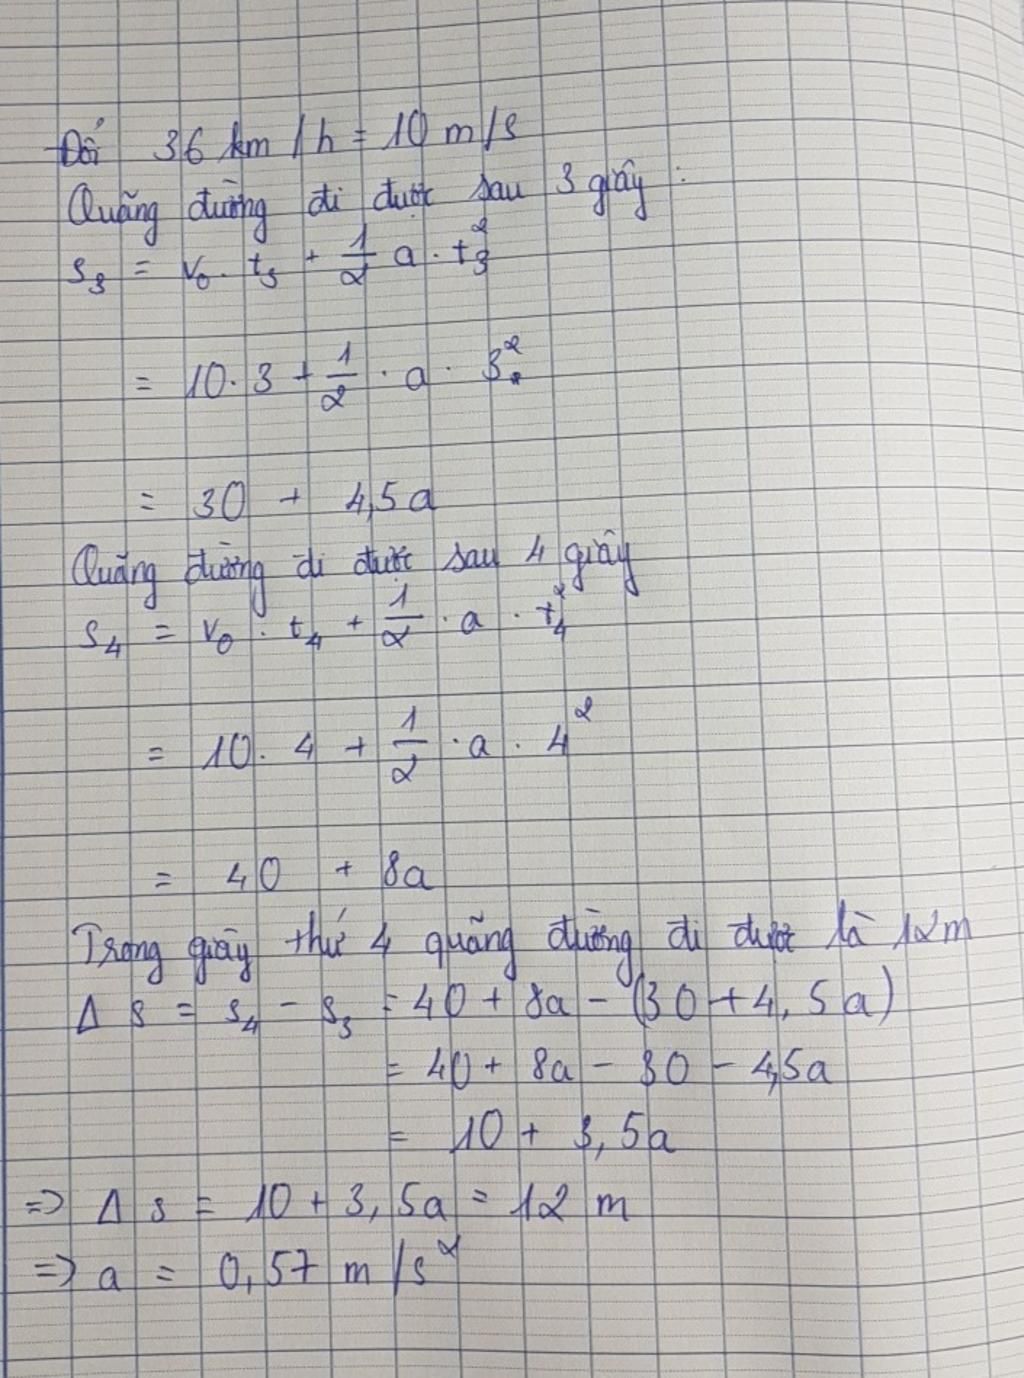 Đổi 36 km/h = 10 m/s
Quãng đường đi được sau 3 giây :
s₃ = v₀ . t₃ + 1/2 a . t₃²
= 10 . 3 + 1/2 . a . 3²
= 30 + 4,5a
Quãng đường đi được sau 4 giây
s₄ = v₀ . t₄ + 1/2 . a . t₄²
= 10 . 4 + 1/2 . a . 4²
= 40 + 8a
Trong giây thứ 4 quãng đường đi được là 12m
Δ s = s₄ - s₃ = 40 + 8a - (30 + 4,5a)
= 40 + 8a - 30 - 4,5a
= 10 + 3,5a
=> Δ s = 10 + 3,5a = 12 m
=> a = 0,57 m/s²